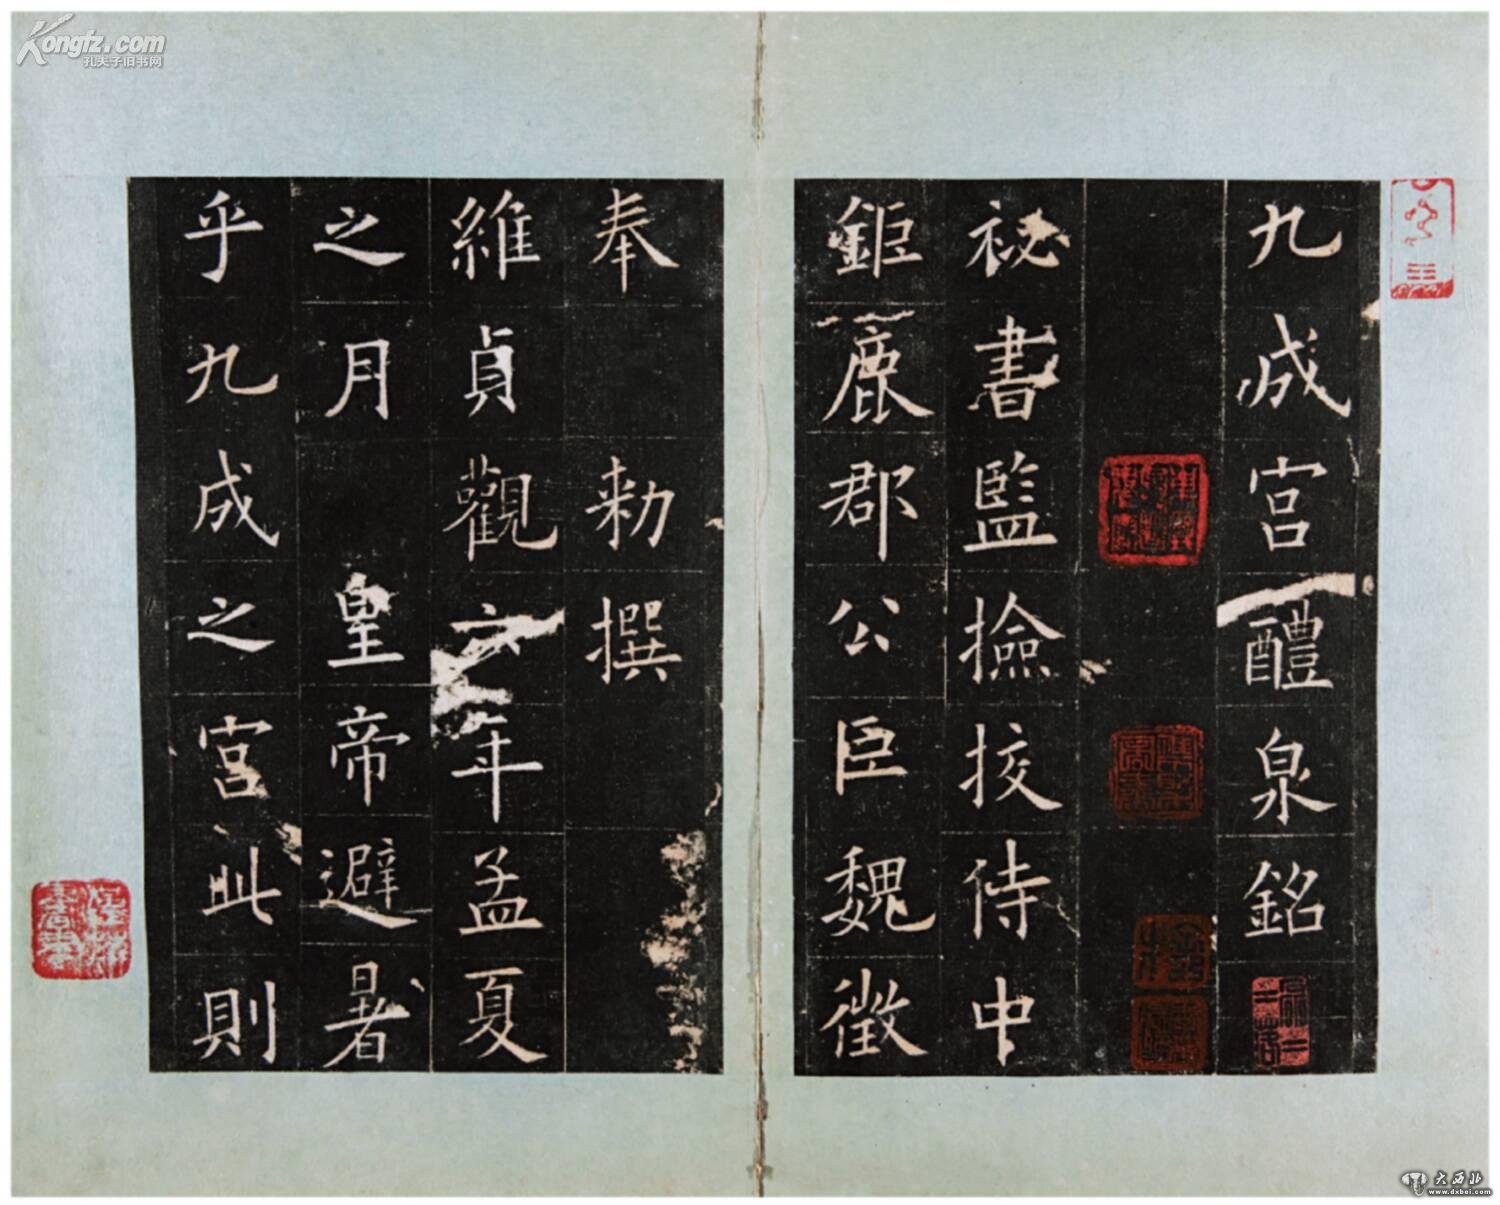 九成宮醴泉銘
祕書監撿挍侍中
鉅鹿郡公臣魏徵
奉 勅撰
維貞觀六年孟夏
之月 皇帝避暑
乎九成之宮此則
Kongfz.com
孔夫子旧书网
大西北
www.dxbei.com